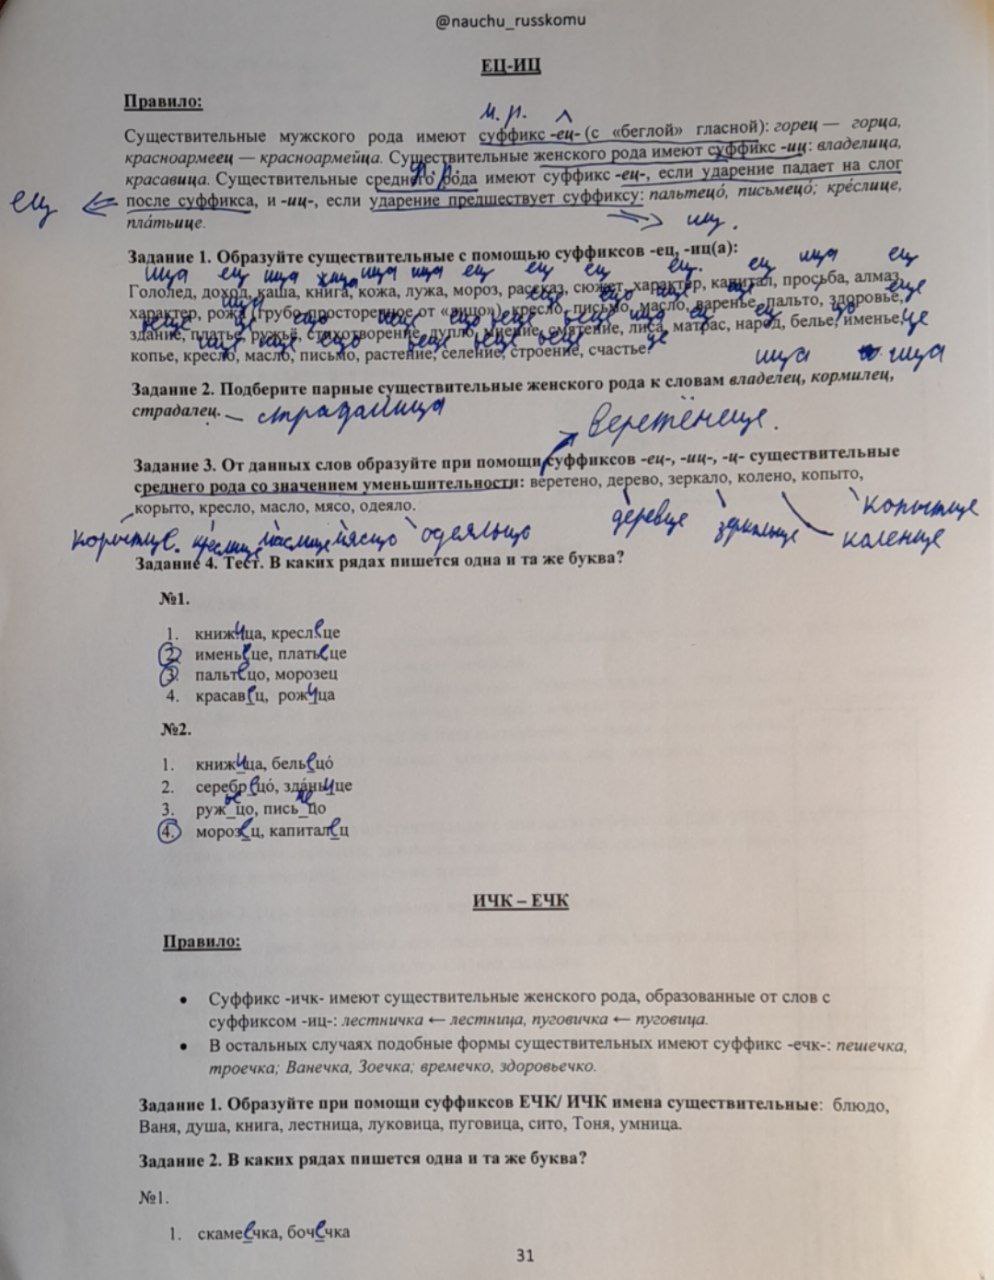 @nauchu_russkomu
ЕЦ-ИЦ
Правило:
м. р.
Существительные мужского рода имеют суффикс -ец- (с «беглой» гласной): горец — горца,
красноармеец — красноармейца. Существительные женского рода имеют суффикс -иц-: владелица,
красавица. Существительные среднего рода имеют суффикс -ец-, если ударение падает на слог
ец
после суффикса, и -иц-, если ударение предшествует суффиксу: пальтецо́, письмецо́; кре́слице,
пла́тьице.
иц.
Задание 1. Образуйте существительные с помощью суффиксов -ец, -иц(а):
ица ец ица ица ица ец ец ец ец. ец ица ец
Гололед, доход, каша, книга, кожа, лужа, мороз, рассказ, сюжет, характер, капитал, просьба, алмаз,
характер, рожа (грубо-просторечное от «лицо»), кресло, письмо, масло, варенье, пальто, здоровье,
здание, платье, ружьё, стихотворение, дупло, мнение, смятение, лиса, матрас, народ, белье, именье,
копье, кресло, масло, письмо, растение, селение, строение, счастье.
ица ица
Задание 2. Подберите парные существительные женского рода к словам владелец, кормилец,
страдалец. – страдалица
веретёнеце.
Задание 3. От данных слов образуйте при помощи суффиксов -ец-, -иц-, -ц- существительные
среднего рода со значением уменьшительности: веретено, дерево, зеркало, колено, копыто,
корыто, кресло, масло, мясо, одеяло.
деревце зеркальце копытце
корытце. креслице маслице мясцо одеяльцо коленце
Задание 4. Тест. В каких рядах пишется одна и та же буква?
№1.
1. книжица, креслеце
2. именьеце, платьеце
3. пальтецо, морозец
4. красавец, рожица
№2.
1. книжица, бельецо́
2. серебрецо́, зда́ньице
3. ружьецо, письмецо
4. морозец, капиталец
ИЧК – ЕЧК
Правило:
• Суффикс -ичк- имеют существительные женского рода, образованные от слов с
суффиксом -иц-: лестничка ← лестница, пуговичка ← пуговица.
• В остальных случаях подобные формы существительных имеют суффикс -ечк-: пешечка,
троечка; Ванечка, Зоечка; времечко, здоровьечко.
Задание 1. Образуйте при помощи суффиксов ЕЧК/ ИЧК имена существительные: блюдо,
Ваня, душа, книга, лестница, луковица, пуговица, сито, Тоня, умница.
Задание 2. В каких рядах пишется одна и та же буква?
№1.
1. скамеечка, бочечка
31